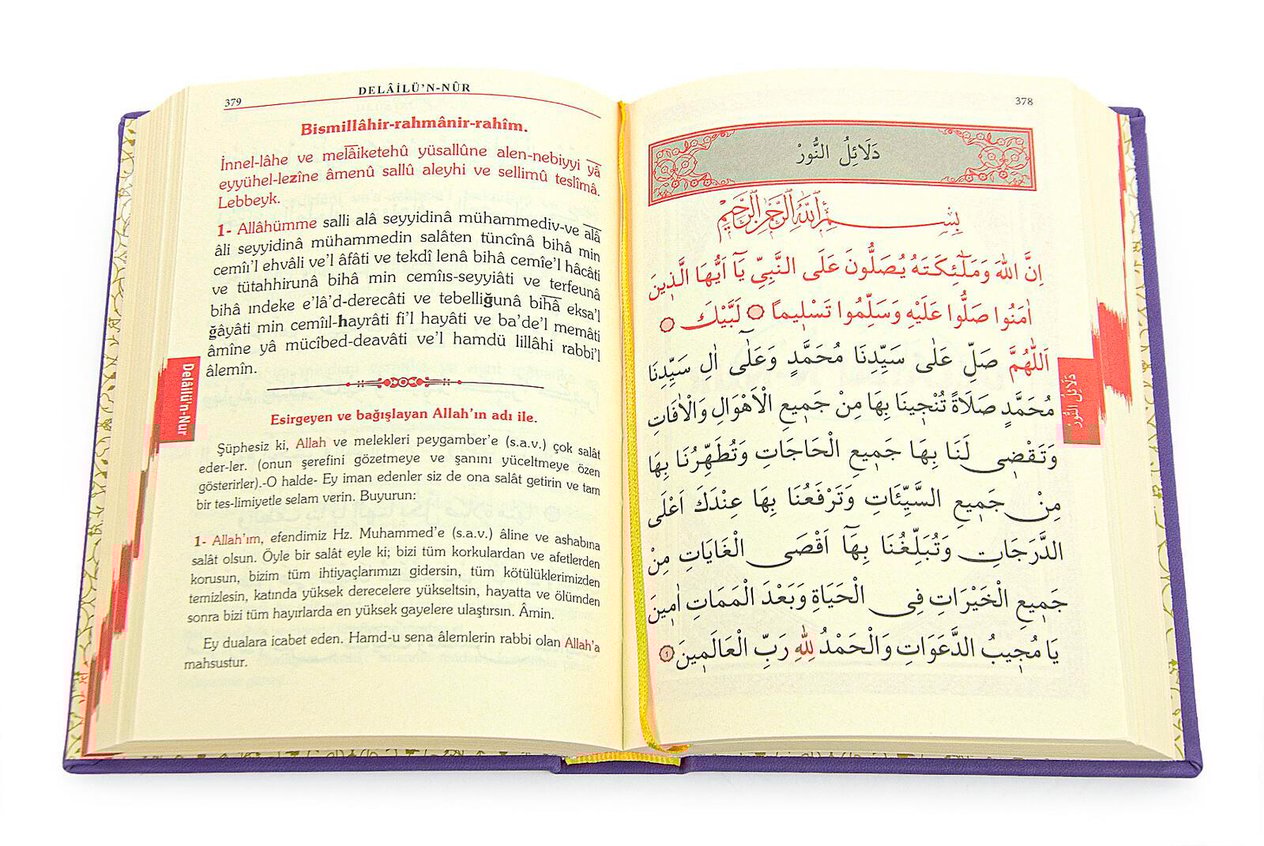 378
دَلَائِلُ النُّورْ
بِسْمِ اللّٰهِ الرَّحْمٰنِ الرَّحِيمِ
اِنَّ اللّٰهَ وَمَلٰٓئِكَتَهُ يُصَلُّونَ عَلَى النَّبِيِّ يَٓا اَيُّهَا الَّذ۪ينَ
اٰمَنُوا صَلُّوا عَلَيْهِ وَسَلِّمُوا تَسْل۪يمًا ۞ لَبَّيْكَ ۞
اَللّٰهُمَّ صَلِّ عَلٰى سَيِّدِنَا مُحَمَّدٍ وَعَلٰٓى اٰلِ سَيِّدِنَا
مُحَمَّدٍ صَلَاةً تُنْج۪ينَا بِهَا مِنْ جَم۪يعِ الْاَهْوَالِ وَالْاٰفَاتِ
وَتَقْض۪ى لَنَا بِهَا جَم۪يعَ الْحَاجَاتِ وَتُطَهِّرُنَا بِهَا
مِنْ جَم۪يعِ السَّيِّئَاتِ وَتَرْفَعُنَا بِهَا عِنْدَكَ اَعْلَى
الدَّرَجَاتِ وَتُبَلِّغُنَا بِهَٓا اَقْصَى الْغَايَاتِ مِنْ
جَم۪يعِ الْخَيْرَاتِ فِى الْحَيَاةِ وَبَعْدَ الْمَمَاتِ اٰم۪ينَ
يَا مُج۪يبُ الدَّعَوَاتِ وَالْحَمْدُ لِلّٰهِ رَبِّ الْعَالَم۪ينَ ۝١
دَلَائِلُ النُّورْ
379
DELÂİLÜ'N-NÛR
Bismillâhir-rahmânir-rahîm.
İnnel-lâhe ve melâiketehû yüsallûne alen-nebiyyi yâ
eyyühel-lezîne âmenû sallû aleyhi ve sellimû teslîmâ.
Lebbeyk.
1- Allâhümme salli alâ seyyidinâ mühammediv-ve alâ
âli seyyidinâ mühammedin salâten tüncînâ bihâ min
cemîi'l ehvâli ve'l âfâti ve tekdî lenâ bihâ cemîe'l hâcâti
ve tütahhirunâ bihâ min cemîis-seyyiâti ve terfeunâ
bihâ ındeke e'lâ'd-derecâti ve tebelliğunâ bihâ eksa'l
ğâyâti min cemîil-hayrâti fi'l hayâti ve ba'de'l memâti
âmîne yâ mücîbed-deavâti ve'l hamdü lillâhi rabbi'l
âlemîn.
Esirgeyen ve bağışlayan Allah'ın adı ile.
Şüphesiz ki, Allah ve melekleri peygamber'e (s.a.v.) çok salât
eder-ler. (onun şerefini gözetmeye ve şanını yüceltmeye özen
gösterirler).-O halde- Ey iman edenler siz de ona salât getirin ve tam
bir tes-limiyetle selam verin. Buyurun:
1- Allah'ım, efendimiz Hz. Muhammed'e (s.a.v.) âline ve ashabına
salât olsun. Öyle bir salât eyle ki; bizi tüm korkulardan ve afetlerden
korusun, bizim tüm ihtiyaçlarımızı gidersin, tüm kötülüklerimizden
temizlesin, katında yüksek derecelere yükseltsin, hayatta ve ölümden
sonra bizi tüm hayırlarda en yüksek gayelere ulaştırsın. Âmin.
Ey dualara icabet eden. Hamd-u sena âlemlerin rabbi olan Allah'a
mahsustur.
Delâilü'n-Nur